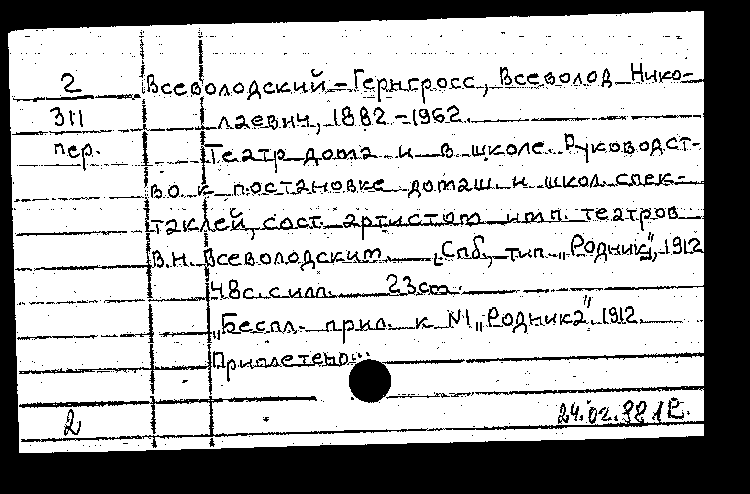 2 Всеволодский-Гернгросс, Всеволод Нико-
311 лаевич, 1882-1962.
пер. Театр дома и в школе. Руководст-
во к постановке домаш. и школ. спек-
таклей, сост. артистом имп. театров
В.Н. Всеволодским. Спб, тип. „Родник", 1912
48с. с илл. 23cm.
„Беспл. прил. к №1 „Родника". 1912.
Приплетено:
2 24.02.92